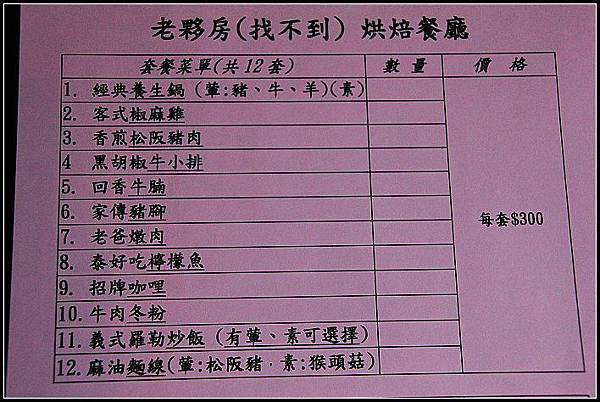 老夥房(找不到) 烘焙餐廳
套餐菜單(共12套) 數量 價格
1. 經典養生鍋 (葷:豬、牛、羊)(素)
2. 客式椒麻雞
3. 香煎松阪豬肉
4 黑胡椒牛小排
5. 回香牛腩
6. 家傳豬腳
7. 老爸燉肉
8. 泰好吃檸檬魚
9. 招牌咖哩
10. 牛肉冬粉
11. 義式羅勒炒飯 (有葷、素可選擇)
12. 麻油麵線(葷:松阪豬．素:猴頭菇)
每套$300